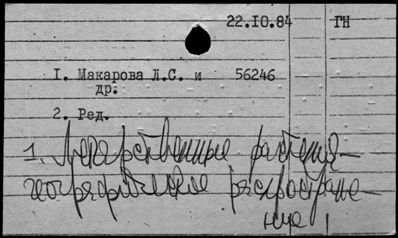 22.IO.84 ГН
I. Макарова Л.С. и 56246
др.
2. Ред.
1. Лекарственные растения –
географическое распростране-
ние